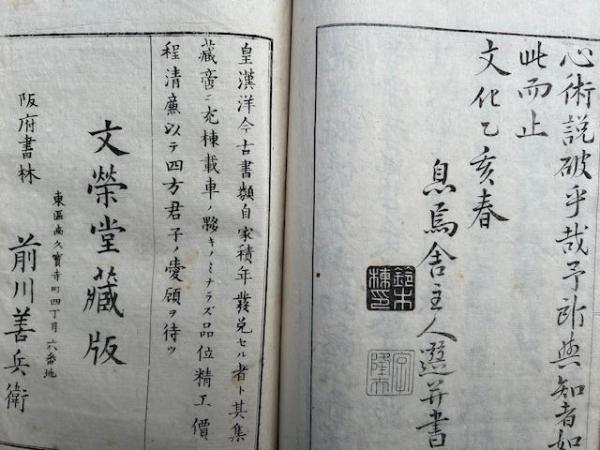 心術説破乎哉予所與知者如
此而止
文化乙亥春
息焉舍主人選并書
鈴木
棟印
皇漢洋今古書類自家積年發兌セル者ト其集
藏啻ニ充棟載車ノ夥キノミナラズ品位精工價
程清廉以テ四方君子ノ愛顧ヲ待ツ
文榮堂藏版
東區南久寶寺町四丁目六番地
阪府書林
前川善兵衛